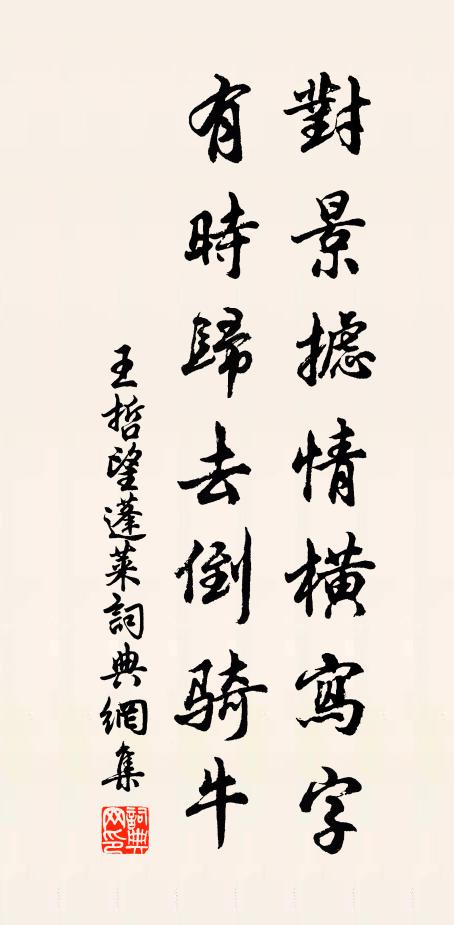 對景攄情橫寫字
有時歸去倒騎牛
王哲望蓬萊詞典網集
詞典
网印